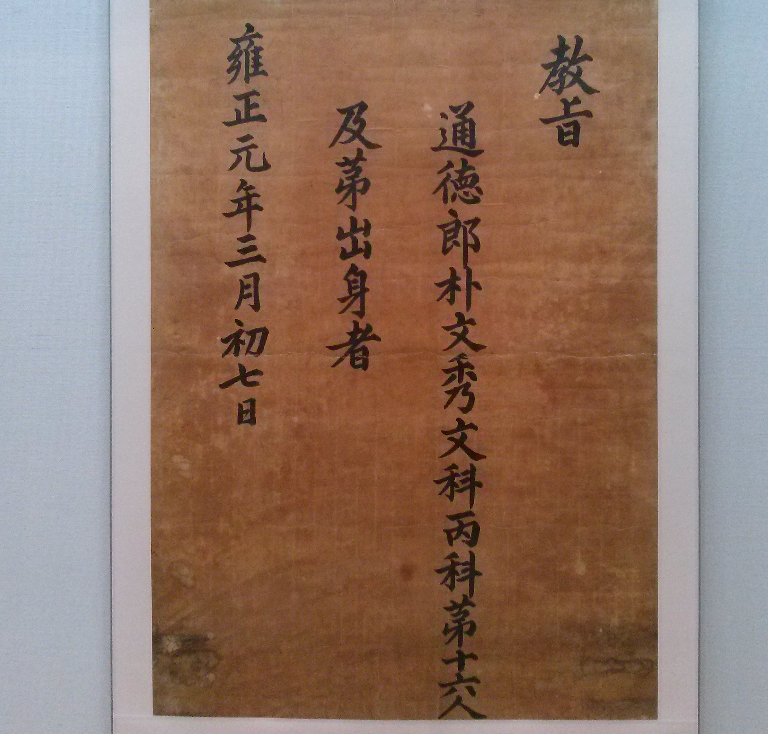 教旨
通徳郎朴文秀文科丙科苐十六人
及苐出身者
雍正元年三月初七日